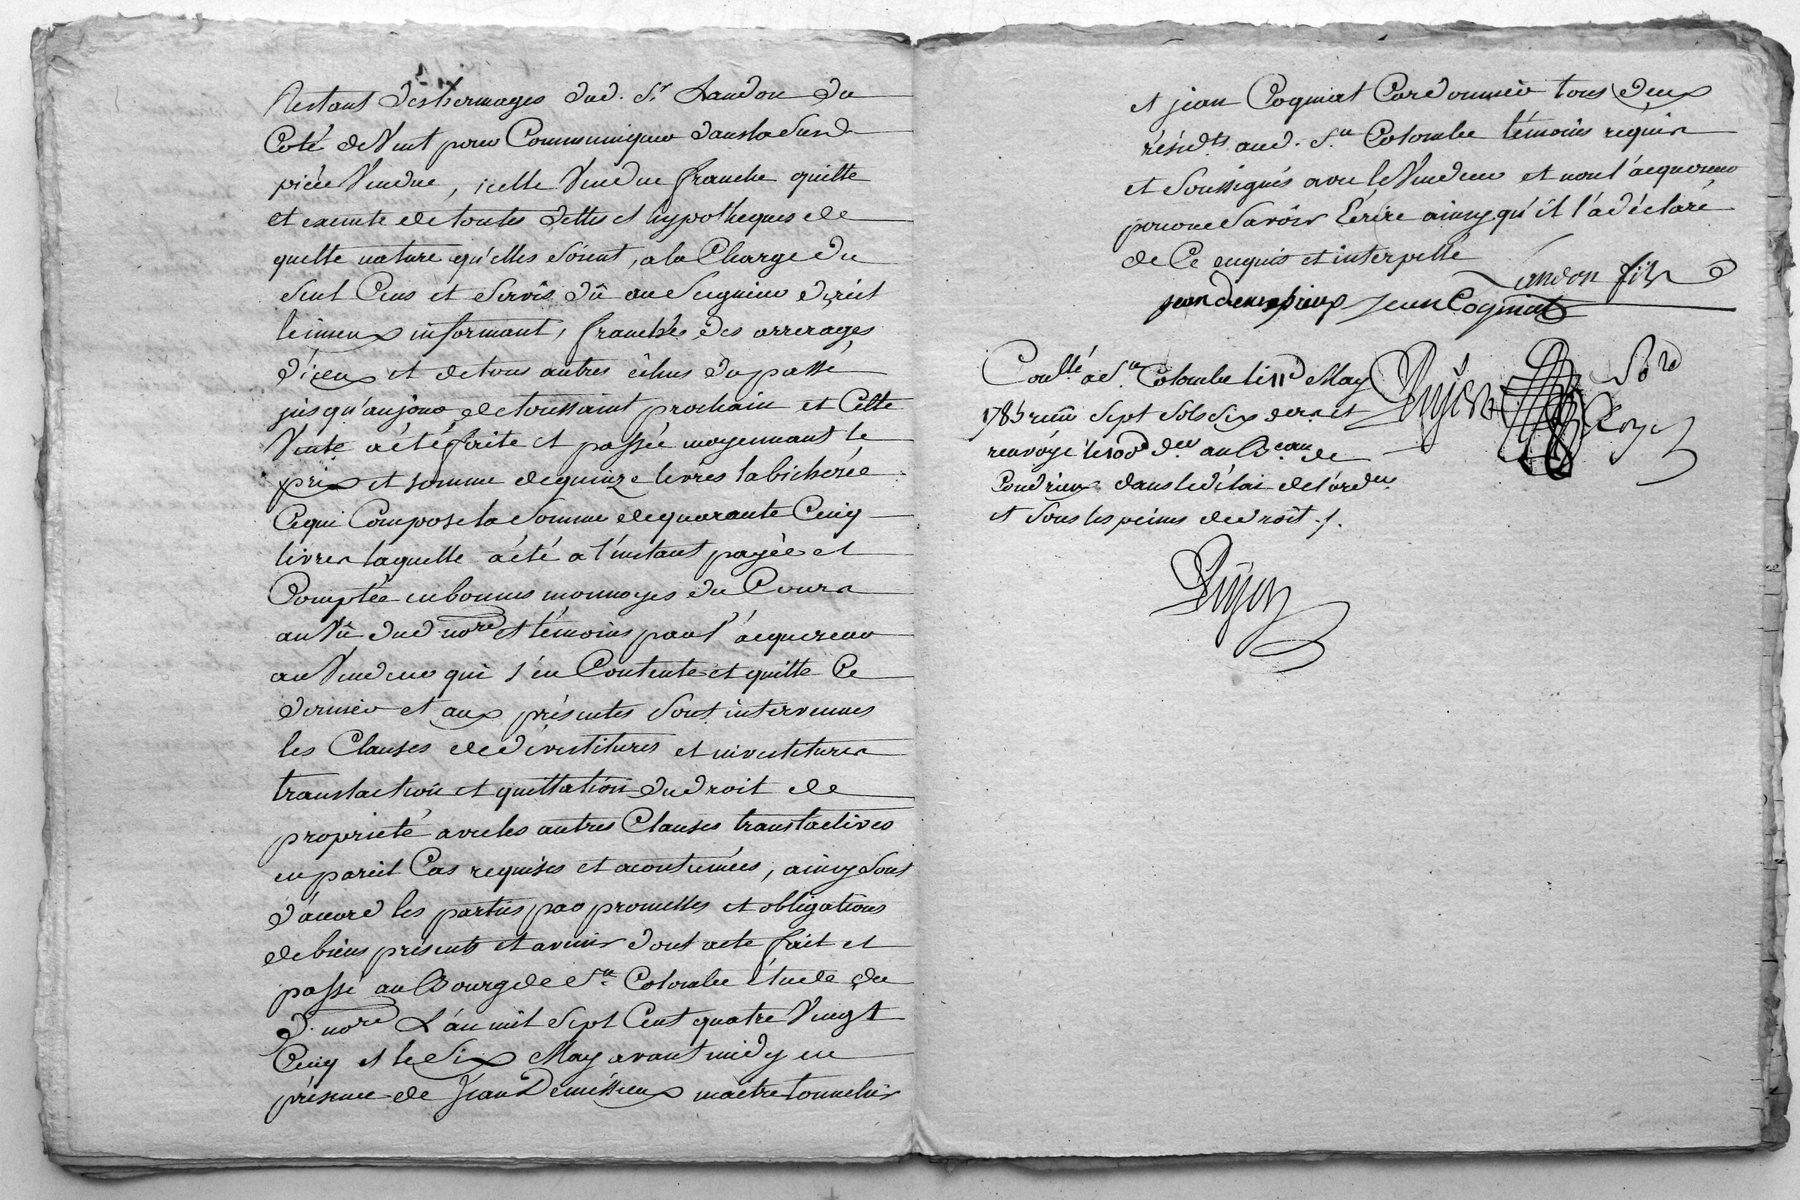 Restant des hermages dud. Sr. Landon du
Coté de Vent pour Communiquer dans la Susd.
pièce Vendue, icelle Vendue franche quitte
et exemte de toutes dettes et hypotheques de
quelle nature qu'elles soient, a la Charge du
seul Cens et Servis dû au Seigneur direct
le mieux informant, franchés des arrerages
d'iceux et de tous autres échus du passé
jusqu'aujour de toussaint prochain et Cette
Vente a été faite et passée moyennant le
prix et somme de quinze livres la bicherée
Cequi Compose la Somme de quarante Cinq
livres laquelle a été a l'instant payée et
Comptée en bonnes monnoyes du Cours
au Vû dud. nore et témoins par l'acquereur
au Vendeur qui s'en Contente et quitte Ce
dernier et aux présentes sont intervenues
les Clauses de dévestitures et investitures
translaction et quittation du droit de
proprieté avec les autres Clauses translatives
en pareil Cas requises et acoutumées, ainsy sont
d'acord les parties par promesses et obligations
de biens présents et avenir dont acte fait et
passé au Bourg de Ste. Colombe étude du
d. nore L'an mil Sept Cent quatre Vingt
Cinq et le Six May avant midy en
présence de Jean Demissieux maitre tonnelier
et jean Cogniat Cordonnier tous deux
résidts. aud. Ste. Colombe témoins requis
et Soussignés avec le Vendeur et non l'acquereur
pour ne Savoir Ecrire ainsy qu'il l'a déclaré
de Ce enquis et interpellé
Landon fils
jean demissieux jean Cogniat
Conllé a Ste. Colombe le 11e May
1785 reçu Sept Sols Six deniers et
renvoyé le 100e dr. au Beau de
Condrieu dans le délai de l'ordce.
et Sous les peines de droit ./.